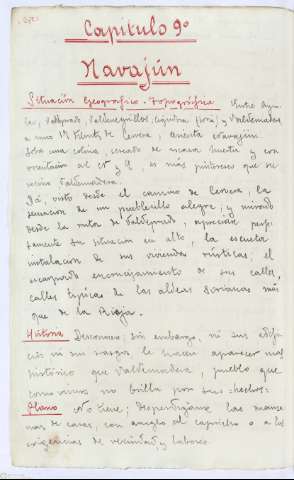 Capítulo 9º
Navajún
Situación Geográfico-Topográfica Entre Agui-
lar, Valdeprado, Valdenegrillos, Cigudosa (Soria) y Valdemadera
a unos 17 kilomts. de Cervera, asienta Navajún
sobre una colina, rodeado de escasa huerta y con
orientación al N y E, es más pintoresco que su
vecino Valdemadera.
Da, visto desde el camino de Cervera, la
sensación de un pueblecillo alegre, y mirado
desde la ruta de Valdeprado, aparecen perfec-
tamente su situación en alto, la escueta
instalación de sus viviendas rústicas, el
escarpado encajonamiento de sus calles,
calles típicas de las aldeas sorianas más
que de la Rioja.
Historia Desconocida, sin embargo, ni sus edifi-
cios ni sus rasgos le hacen aparecer más
histórico que Valdemadera, pueblo que
como vimos no brilla por sus hechos.
Plano No tiene; desperdigadas las manza-
nas de casas, con arreglo al capricho o a las
exigencias de vecindad y labores.